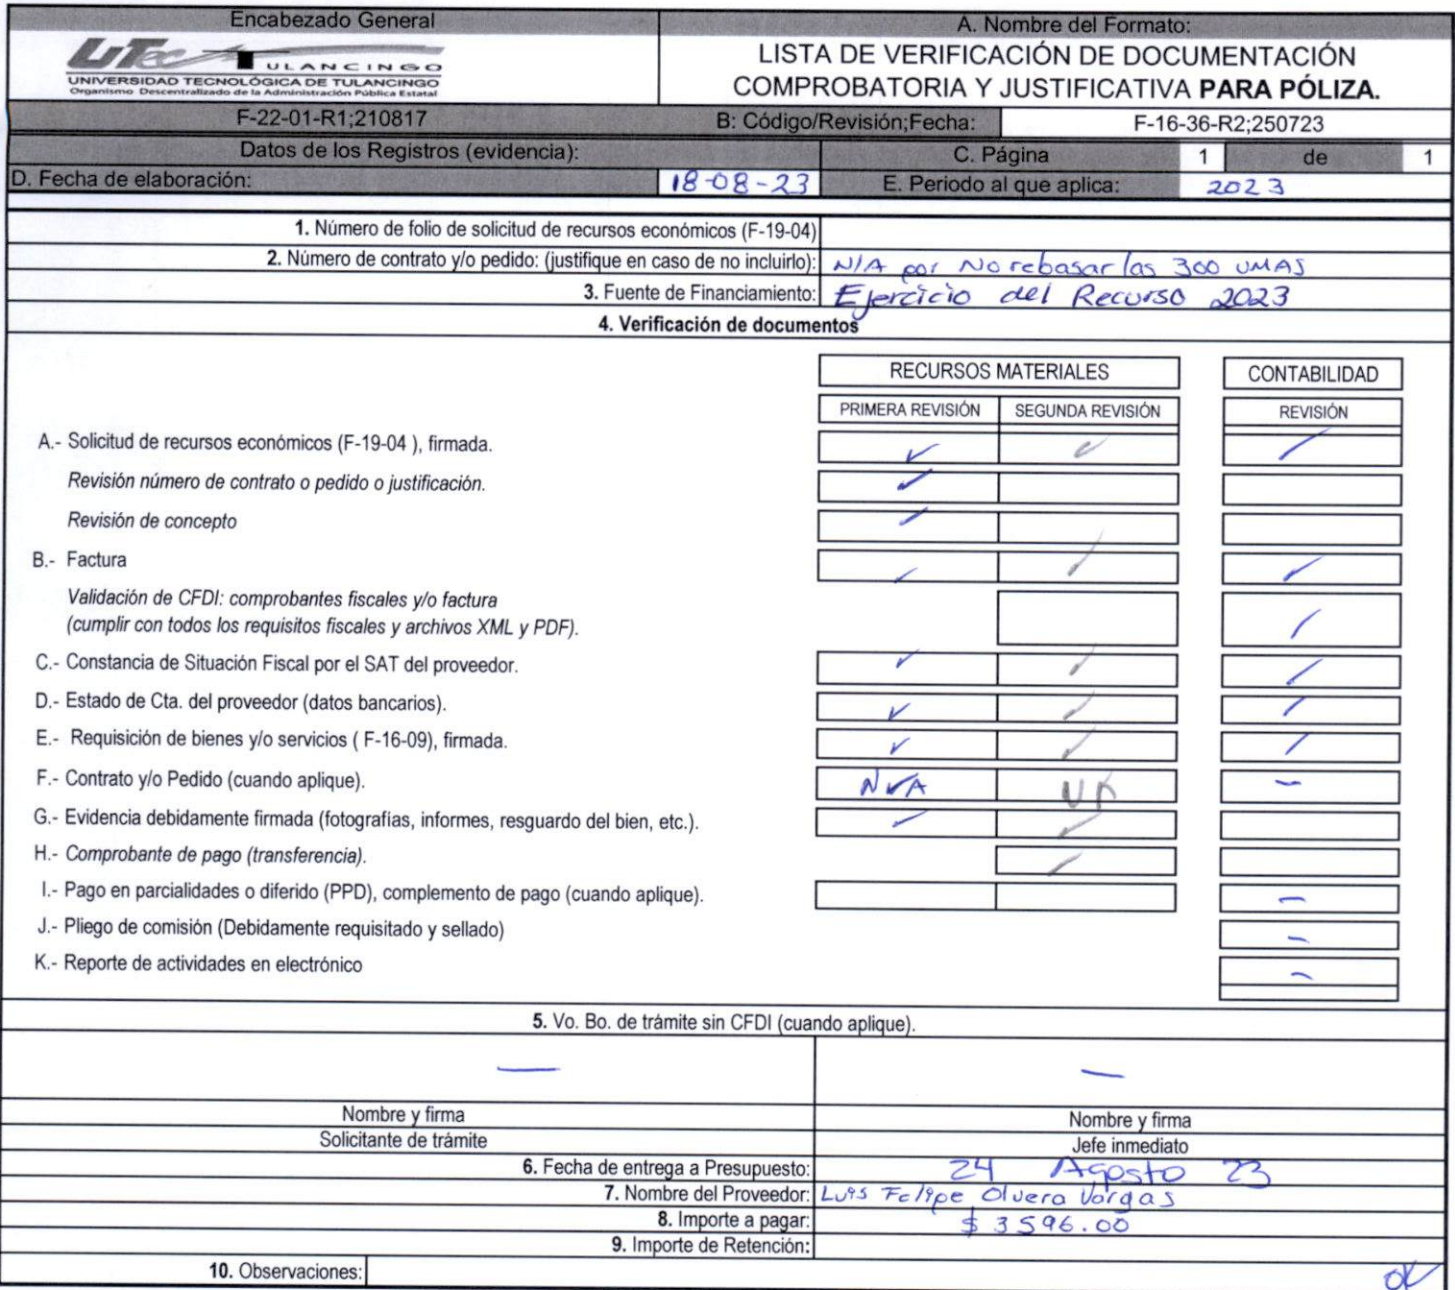 Encabezado General
A. Nombre del Formato:
UTec TULANCINGO
UNIVERSIDAD TECNOLÓGICA DE TULANCINGO
Organismo Descentralizado de la Administración Pública Estatal
LISTA DE VERIFICACIÓN DE DOCUMENTACIÓN
COMPROBATORIA Y JUSTIFICATIVA PARA PÓLIZA.
F-22-01-R1;210817 B: Código/Revisión;Fecha: F-16-36-R2;250723
Datos de los Registros (evidencia): C. Página 1 de 1
D. Fecha de elaboración: 18-08-23 E. Periodo al que aplica: 2023
1. Número de folio de solicitud de recursos económicos (F-19-04)
2. Número de contrato y/o pedido: (justifique en caso de no incluirlo): N/A por No rebasar las 300 UMAS
3. Fuente de Financiamiento: Ejercicio del Recurso 2023
4. Verificación de documentos
RECURSOS MATERIALES CONTABILIDAD
PRIMERA REVISIÓN SEGUNDA REVISIÓN REVISIÓN
A.- Solicitud de recursos económicos (F-19-04 ), firmada. ✓ ✓ ✓
Revisión número de contrato o pedido o justificación. ✓
Revisión de concepto ✓
B.- Factura ✓ ✓ ✓
Validación de CFDI: comprobantes fiscales y/o factura
(cumplir con todos los requisitos fiscales y archivos XML y PDF). ✓
C.- Constancia de Situación Fiscal por el SAT del proveedor. ✓ ✓ ✓
D.- Estado de Cta. del proveedor (datos bancarios). ✓ ✓ ✓
E.- Requisición de bienes y/o servicios ( F-16-09), firmada. ✓ ✓ ✓
F.- Contrato y/o Pedido (cuando aplique). N/A –
G.- Evidencia debidamente firmada (fotografías, informes, resguardo del bien, etc.). ✓ ✓
H.- Comprobante de pago (transferencia). ✓
I.- Pago en parcialidades o diferido (PPD), complemento de pago (cuando aplique). –
J.- Pliego de comisión (Debidamente requisitado y sellado) –
K.- Reporte de actividades en electrónico –
5. Vo. Bo. de trámite sin CFDI (cuando aplique).
— —
Nombre y firma Nombre y firma
Solicitante de trámite Jefe inmediato
6. Fecha de entrega a Presupuesto: 24 Agosto 23
7. Nombre del Proveedor: Luis Felipe Olvera Vargas
8. Importe a pagar: $ 3596.00
9. Importe de Retención:
10. Observaciones: OK